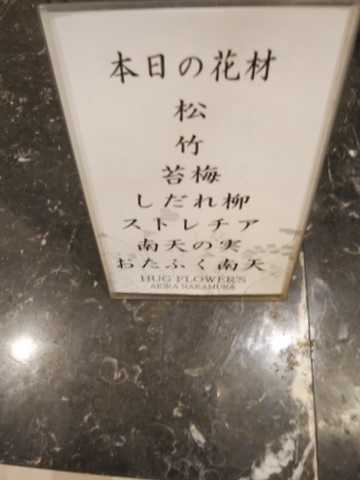 本日の花材
松
竹
苔梅
しだれ柳
ストレチア
南天の実
おたふく南天
HUG FLOWER'S
AKIRA NAKAMURA